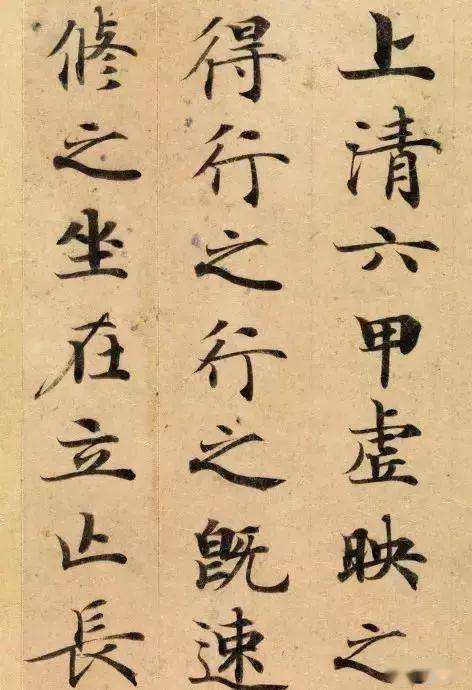 上清六甲虚映之
得行之行之既速
修之坐在立亡長